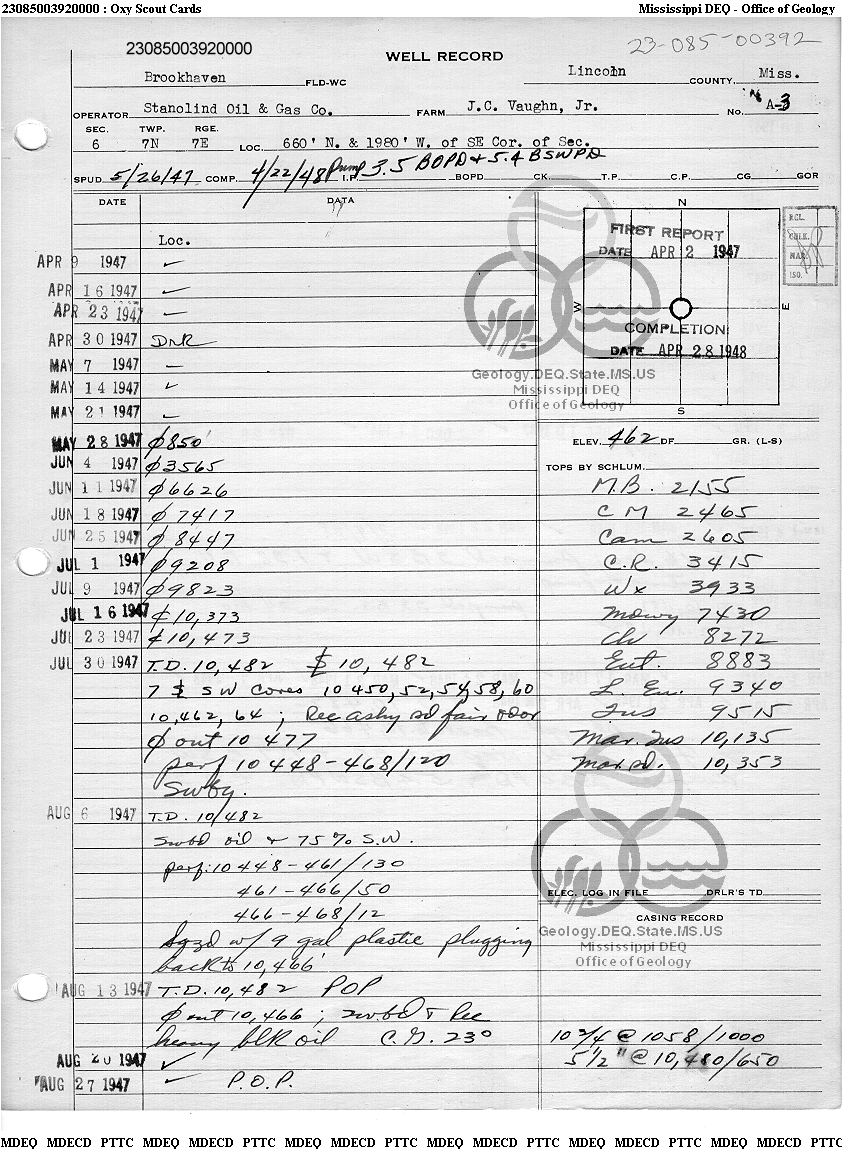 23085003920000 : Oxy Scout Cards Mississippi DEQ - Office of Geology
23085003920000
23-085-00392
WELL RECORD
Brookhaven FLD-WC Lincoln COUNTY, Miss.
OPERATOR Stanolind Oil & Gas Co. FARM J.C. Vaughn, Jr. No. A-3
SEC. TWP. RGE.
6 7N 7E LOC. 660' N. & 1980' W. of SE Cor. of Sec.
SPUD 5/26/47 COMP. 4/22/48 Pump I.P. 3.5 BOPD & 5.4 BSWPD BOPD CK. T.P. C.P. CG GOR
DATE DATA
Loc.
APR 9 1947 ✓
APR 16 1947 ✓
APR 23 1947 ✓
APR 30 1947 DNR
MAY 7 1947 —
MAY 14 1947 ✓
MAY 21 1947 —
MAY 28 1947 ϕ 850'
JUN 4 1947 ϕ 3565
JUN 11 1947 ϕ 6626
JUN 18 1947 ϕ 7417
JUN 25 1947 ϕ 8447
JUL 1 1947 ϕ 9208
JUL 9 1947 ϕ 9823
JUL 16 1947 ₵ 10,373
JUL 23 1947 ¢ 10,473
JUL 30 1947 T.D. 10,482 $ 10,482
7 $ SW Cores 10 450, 52, 54, 58, 60
10,462, 64 ; Rec ashy sd fair odor
ϕ out 10 477
perf 10 448-468/120
Swbg.
AUG 6 1947 T.D. 10/482
Swbd oil & 75% S.W.
perf: 10 448-461/130
461-466/50
466-468/12
Sqzd w/ 9 gal plastic plugging
back to 10,466'
AUG 13 1947 T.D. 10,482 POP
ϕ out 10,466 ; swbd & Rec
heavy blk oil C.G. 23°
AUG 20 1947 ✓
AUG 27 1947 ✓ P.O.P.
N
FIRST REPORT
DATE APR 2 1947
W E
COMPLETION
DATE APR 28 1948
S
RCL.
CHLK.
MAR.
ISO.
Geology.DEQ.State.MS.US
Mississippi DEQ
Office of Geology
ELEV. 462 DF GR. (L-S)
TOPS BY SCHLUM.
M.B. 2155
C M 2465
Cam 2605
C.R. 3415
Wx 3933
Mowy 7430
Chv 8272
Eut. 8883
L. Eu. 9340
Tus 9515
Mar. Tus 10,135
Mar. sd. 10,353
ELEC. LOG IN FILE DRLR'S TD
CASING RECORD
Geology.DEQ.State.MS.US
Mississippi DEQ
Office of Geology
10 3/4 @ 1058/1000
5 1/2" @ 10,480/650
MDEQ MDECD PTTC MDEQ MDECD PTTC MDEQ MDECD PTTC MDEQ MDECD PTTC MDEQ MDECD PTTC MDEQ MDECD PTTC